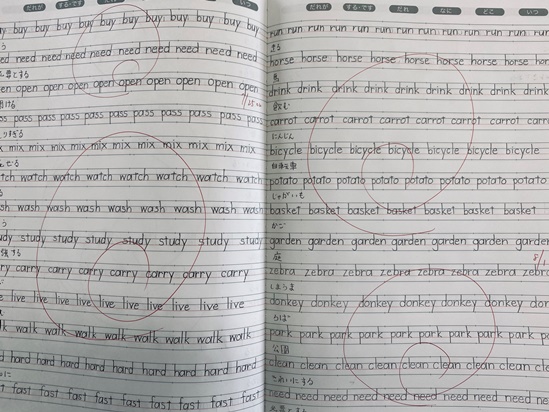 だれが する・です だれ いつ
buy buy buy buy buy buy buy
need need need need need need
open open open open open open open
11/25
pass pass pass pass pass pass pass
mix mix mix mix mix mix mix mix
watch watch watch watch watch watch
wash wash wash wash wash wash
study study study study study study
carry carry carry carry carry carry
live live live live live live live live
walk walk walk walk walk walk walk
hard hard hard hard hard hard hard
fast fast fast fast fast fast fast
だれが する・です だれ なに どこ いつ
run run run run run run run run run run
走る
horse horse horse horse horse horse horse
馬
drink drink drink drink drink drink drink
飲む
carrot carrot carrot carrot carrot carrot
にんじん
bicycle bicycle bicycle bicycle bicycle bicycle
自転車
potato potato potato potato potato potato potato
じゃがいも
basket basket basket basket basket basket
かご
garden garden garden garden garden garden
庭
zebra zebra zebra zebra zebra zebra zebra
しまうま
donkey donkey donkey donkey donkey donkey
ろば
park park park park park park park park
公園
clean clean clean clean clean clean clean
きれいにする
need need need need need need need